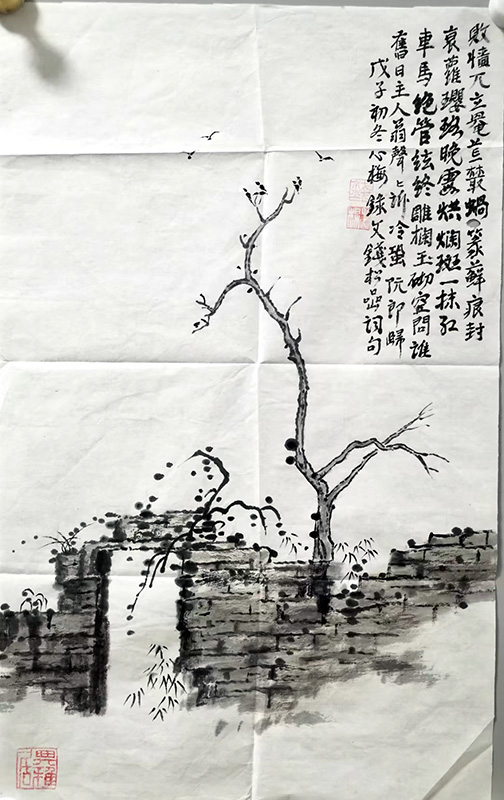 敗牆兀立叢蝸篆蘚痕封
衰蘿瓔珞晚雲烘斕斑一抹紅
車馬絕管絃終雕欄玉砌空問誰
舊日主人翁聲々訴冷蛩阮郎歸
戊子初冬心梅錄文錢松喦詞句